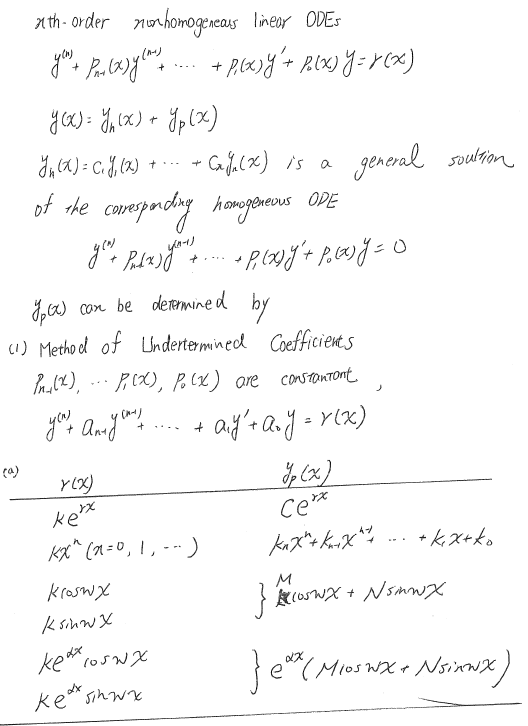 nth-order nonhomogeneous linear ODEs
y⁽ⁿ⁾ + Pₙ₋₁(x)y⁽ⁿ⁻¹⁾ + ···· + P₁(x)y′ + P₀(x)y = r(x)
y(x) = yₕ(x) + yₚ(x)
yₕ(x) = C₁y₁(x) + ··· + Cₙyₙ(x) is a general soultion
of the corresponding homogeneous ODE
y⁽ⁿ⁾ + Pₙ₋₁(x)y⁽ⁿ⁻¹⁾ + ···· + P₁(x)y′ + P₀(x)y = 0
yₚ(x) can be determined by
(1) Method of Undertermined Coefficients
Pₙ₋₁(x), ··· P₁(x), P₀(x) are constantont,
y⁽ⁿ⁾ + aₙ₋₁y⁽ⁿ⁻¹⁾ + ···· + a₁y′ + a₀y = r(x)
(a) r(x) yₚ(x)
ke^{rx} Ce^{rx}
kxⁿ (n=0, 1, ···) kₙxⁿ + kₙ₋₁xⁿ⁻¹ + ··· + k₁x + k₀
kcoswx } Mcoswx + Nsinwx
ksinwx
ke^{αx}coswx } e^{αx}(Mcoswx + Nsinwx)
ke^{αx}sinwx